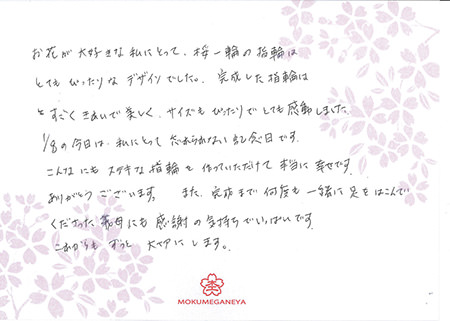 お花が大好きな私にとって、桜一輪の指輪は
とてもぴったりなデザインでした。完成した指輪は
とすごくきれいで楽しく、サイズもぴったりでとても感動しました。
1/8の今日は、私にとって忘れられない記念日です。
こんなにもステキな指輪を作っていただけて本当に幸せです。
ありがとうございます。また、完成まで何度も一緒に足をはこんで
くださった義母にも感謝の気持ちでいっぱいです。
これからもずっと大切にします。
MOKUMEGANEYA